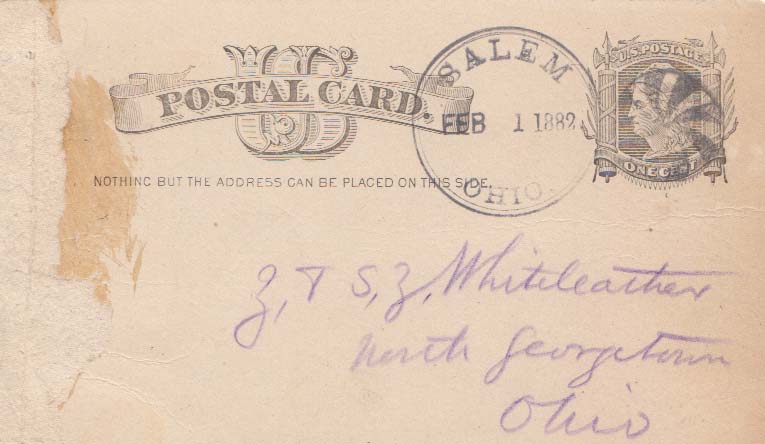 US
POSTAL CARD.
NOTHING BUT THE ADDRESS CAN BE PLACED ON THIS SIDE.
SALEM
FEB 1 1882
OHIO.
U.S. POSTAGE
ONE CENT
Z, & S, Z, Whiteleather
North Georgetown
Ohio